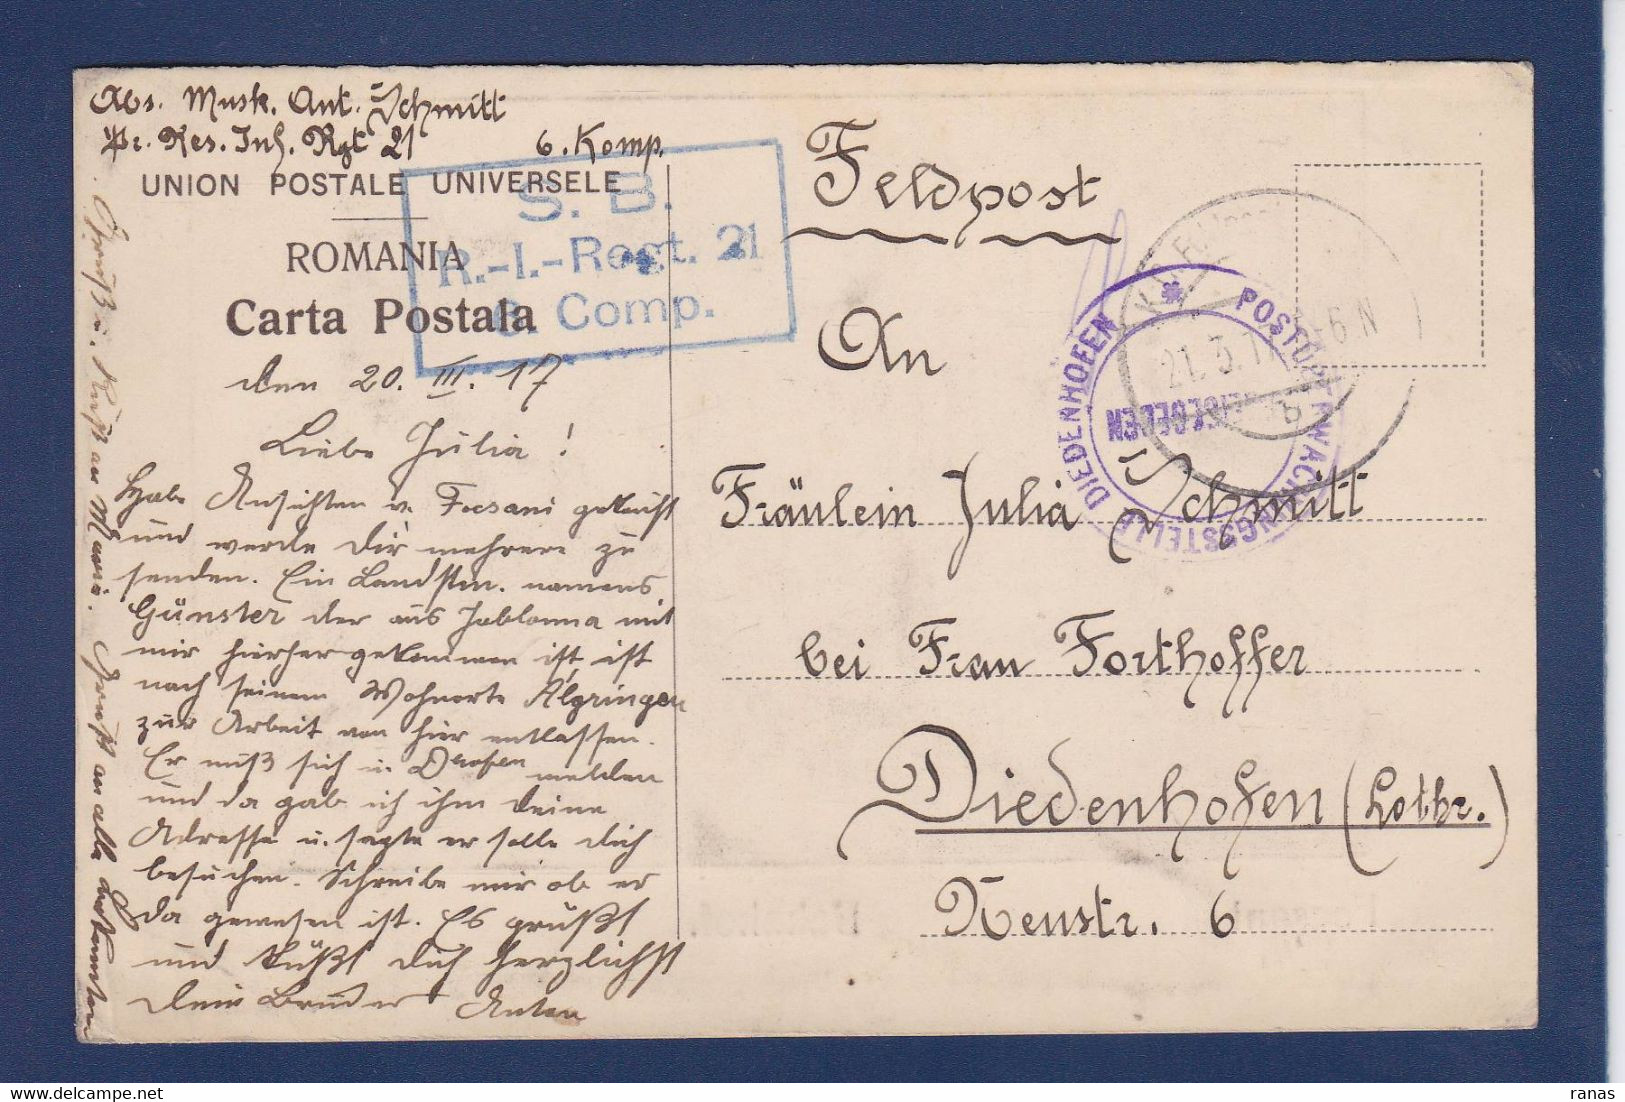 Abs. Musk. Ant. Schmitt
Pr. Res. Inf. Rgt 21 6. Komp.
UNION POSTALE UNIVERSELE
ROMANIA
Carta Postala
S. B.
R.-I.-Regt. 21
6. Comp.
den 20. III. 17
Liebe Julia!
Habe Ansichten v. Focsani gekauft
und werde Dir mehrere zu
senden. Ein Landstm. namens
Günster der aus Jablonna mit
mir hierher gekommen ist, ist
nach seinem Wohnorte Algringen
zur Arbeit von hier entlassen.
Er muß sich in Dhofen melden
und da gab ich ihm deine
Adresse u. sagte er solle dich
besuchen. Schreibe mir ob er
da gewesen ist. Es grüßt
und küßt dich herzlichst
dein Bruder Anton
Gruß u. Kuß an Maria. Gruß an alle Bekannten
Feldpost
An
Fräulein Julia Schmitt
bei Frau Forthoffer
Diedenhofen (Lothr.)
Neustr. 6
POSTÜBERWACHUNGSSTELLE DIEDENHOFEN
21.3.17 5-6 N
b
ranas